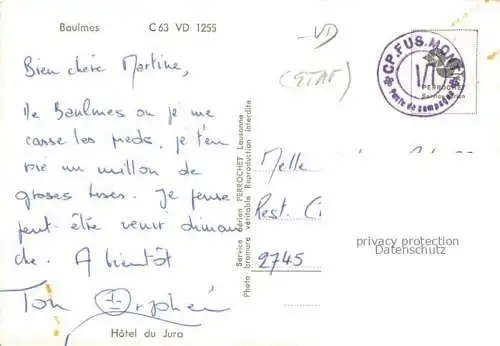 Baulmes C 63 VD 1255
Bien chère Martine,
De Baulmes où je me
casse les pieds, je t'en-
voie un millon de
grosses bises. Je pense
peut être venir diman
che. A bientôt
Ton
Hôtel du Jura
Service aérien PERROCHET Lausanne
Photo bromure véritable Reproduction interdite
VD
CP. FUS. MONT
I/1
Poste de campagne
PERROCHET
Service aérien
Melle
Rest.
2745
privacy protection
Datenschutz